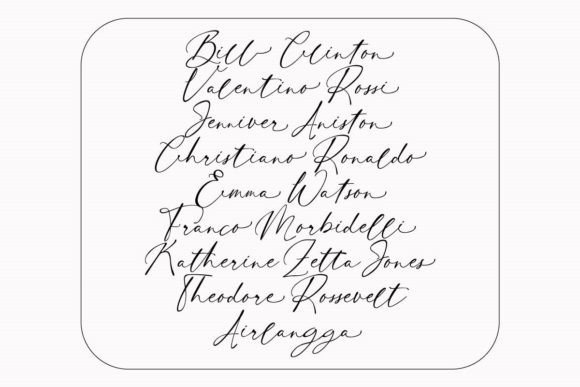 Bill Clinton
Valentino Rossi
Jenniver Aniston
Christiano Ronaldo
Emma Watson
Franco Morbidelli
Katherine Zetta Jones
Theodore Rossevelt
Airlangga